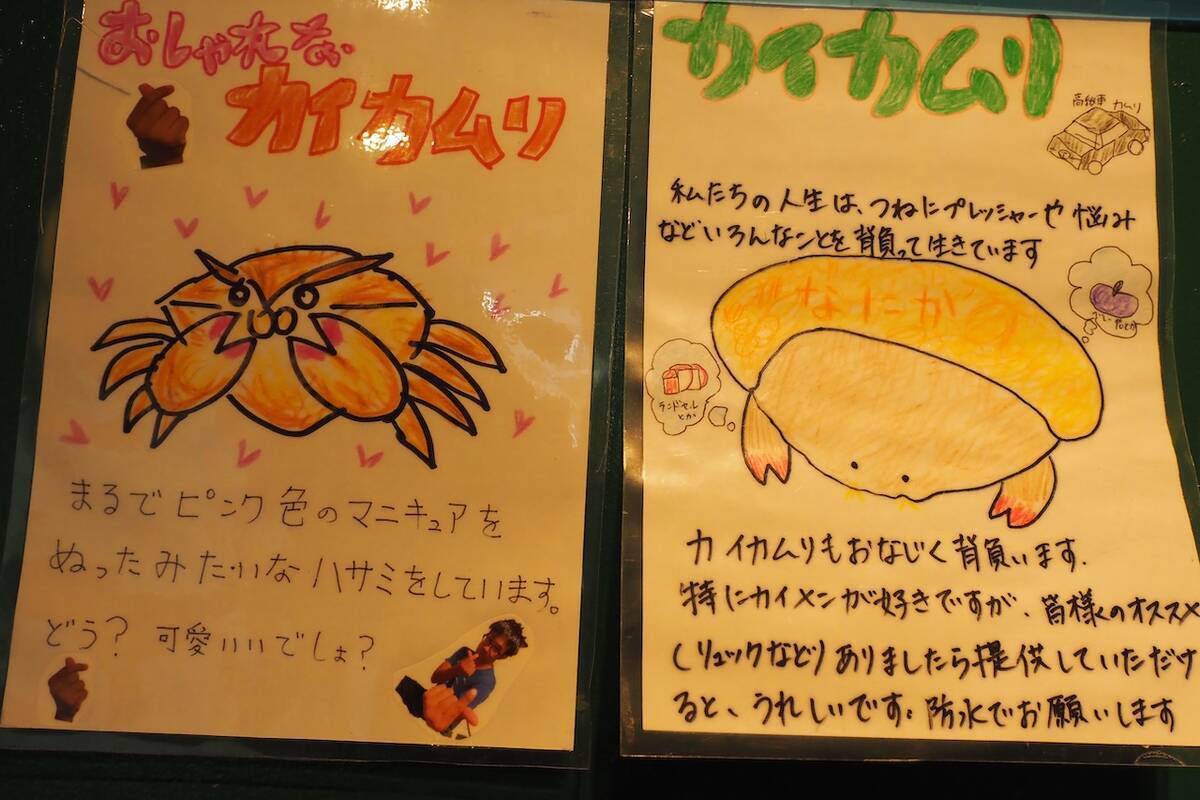 おしゃれな
カイカムリ
まるでピンク色のマニキュアを
ぬったみたいなハサミをしています。
どう? 可愛いいでしょ?
カイカムリ
高級車 カムリ
私たちの人生は、つねにプレッシャーや悩み
などいろんなことを背負って生きています
なにか
ランドセル
とか
カイカムリもおなじく背負います.
特にカイメンが好きですが、皆様のオススメ
(リュックなど)ありましたら提供していただけ
ると、うれしいです。防水でお願いします